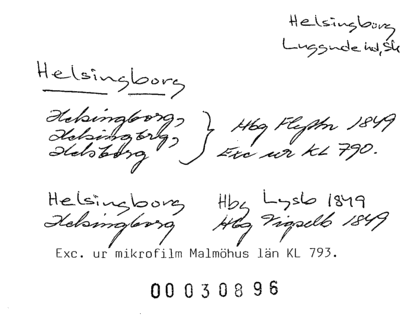 Helsingborg
Luggude hd, Sk
Helsingborg
Helsingborg,
Helsingbrg, } Hbg Flyttn 1849
Helsborg Exc ur KL 790.
Helsingborg Hbg Lysb 1849
Helsingborg Hbg Vigselb 1849
Exc. ur mikrofilm Malmöhus län KL 793.
00 030896